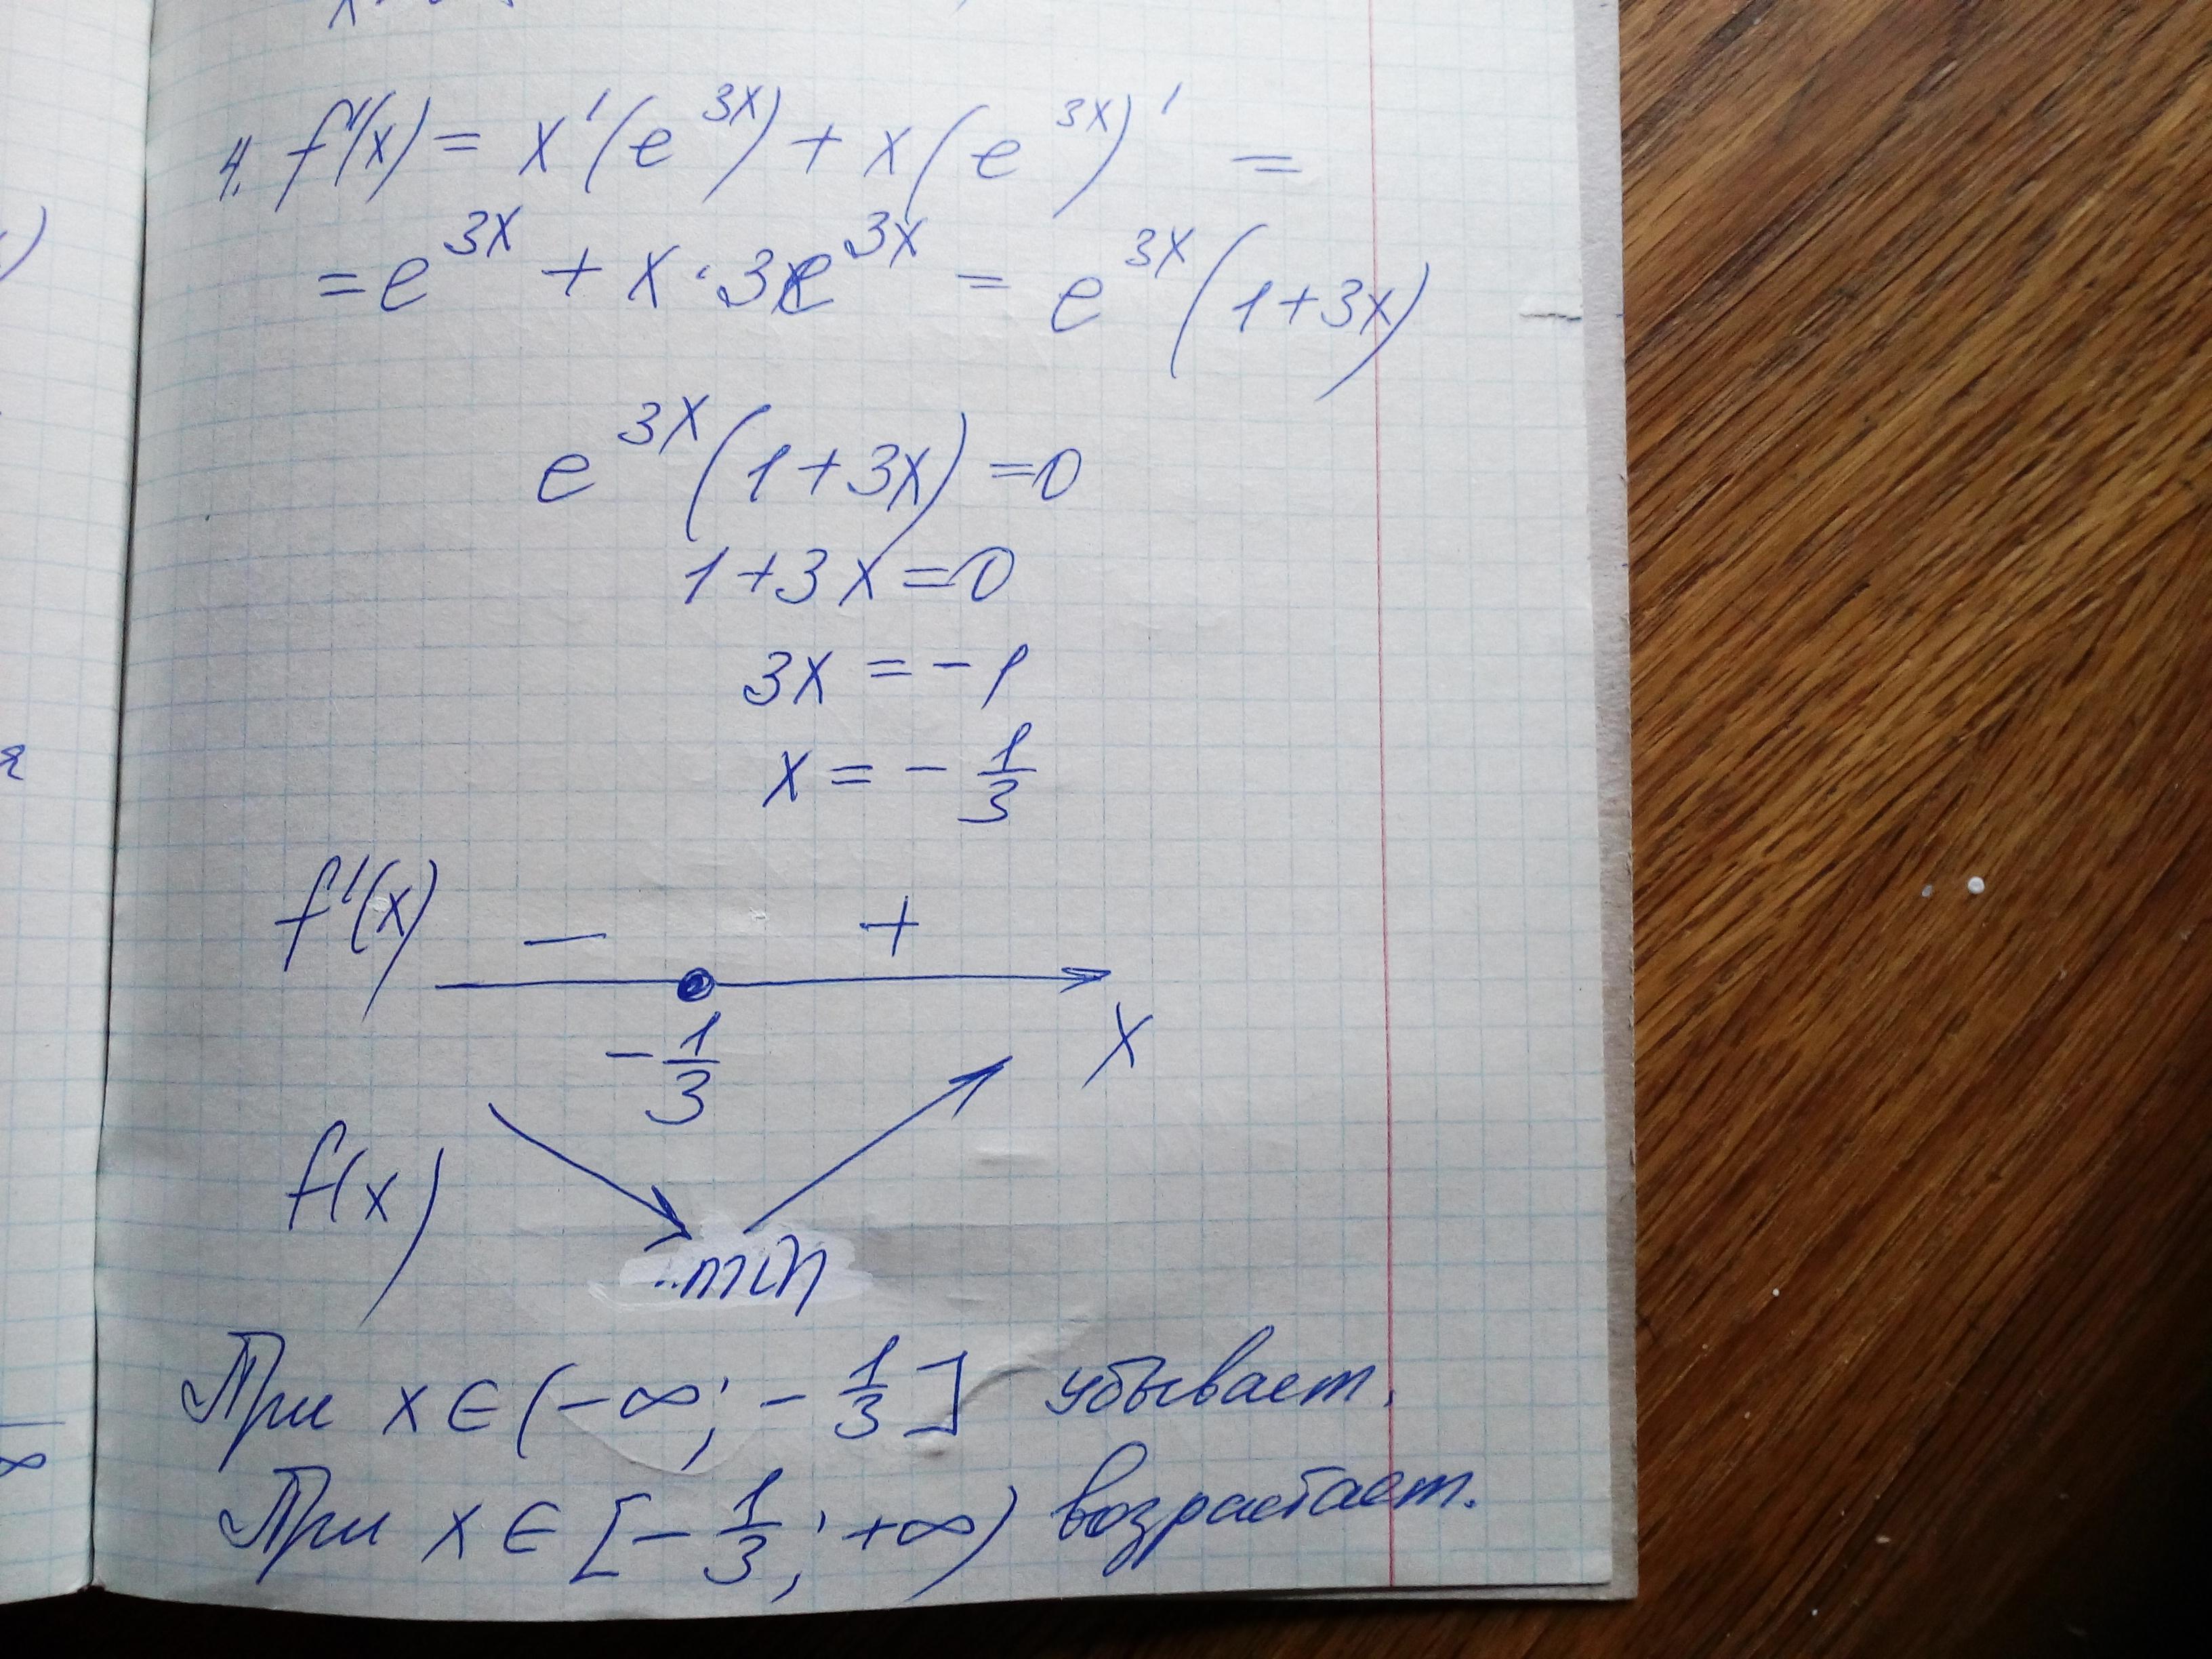 4. f'(x) = x'(e^{3x}) + x(e^{3x})' =
= e^{3x} + x · 3e^{3x} = e^{3x}(1+3x)
e^{3x}(1+3x) = 0
1+3x=0
3x = -1
x = - 1/3
f'(x) — +
- 1/3 x
f(x)
min
При x ∈ (-∞; - 1/3] убывает.
При x ∈ [- 1/3; +∞) возрастает.